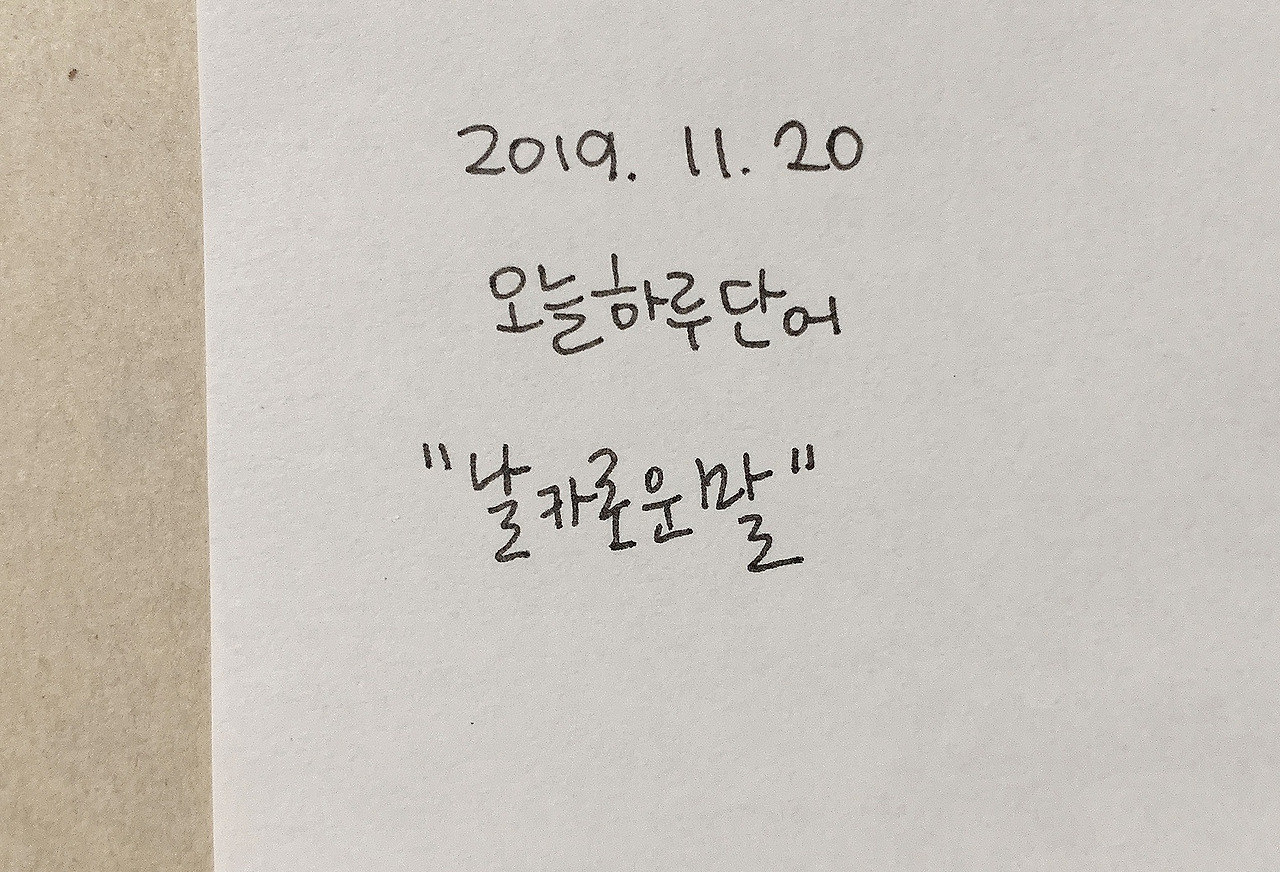 2019. 11. 20
오늘하루단어
"날카로운말"